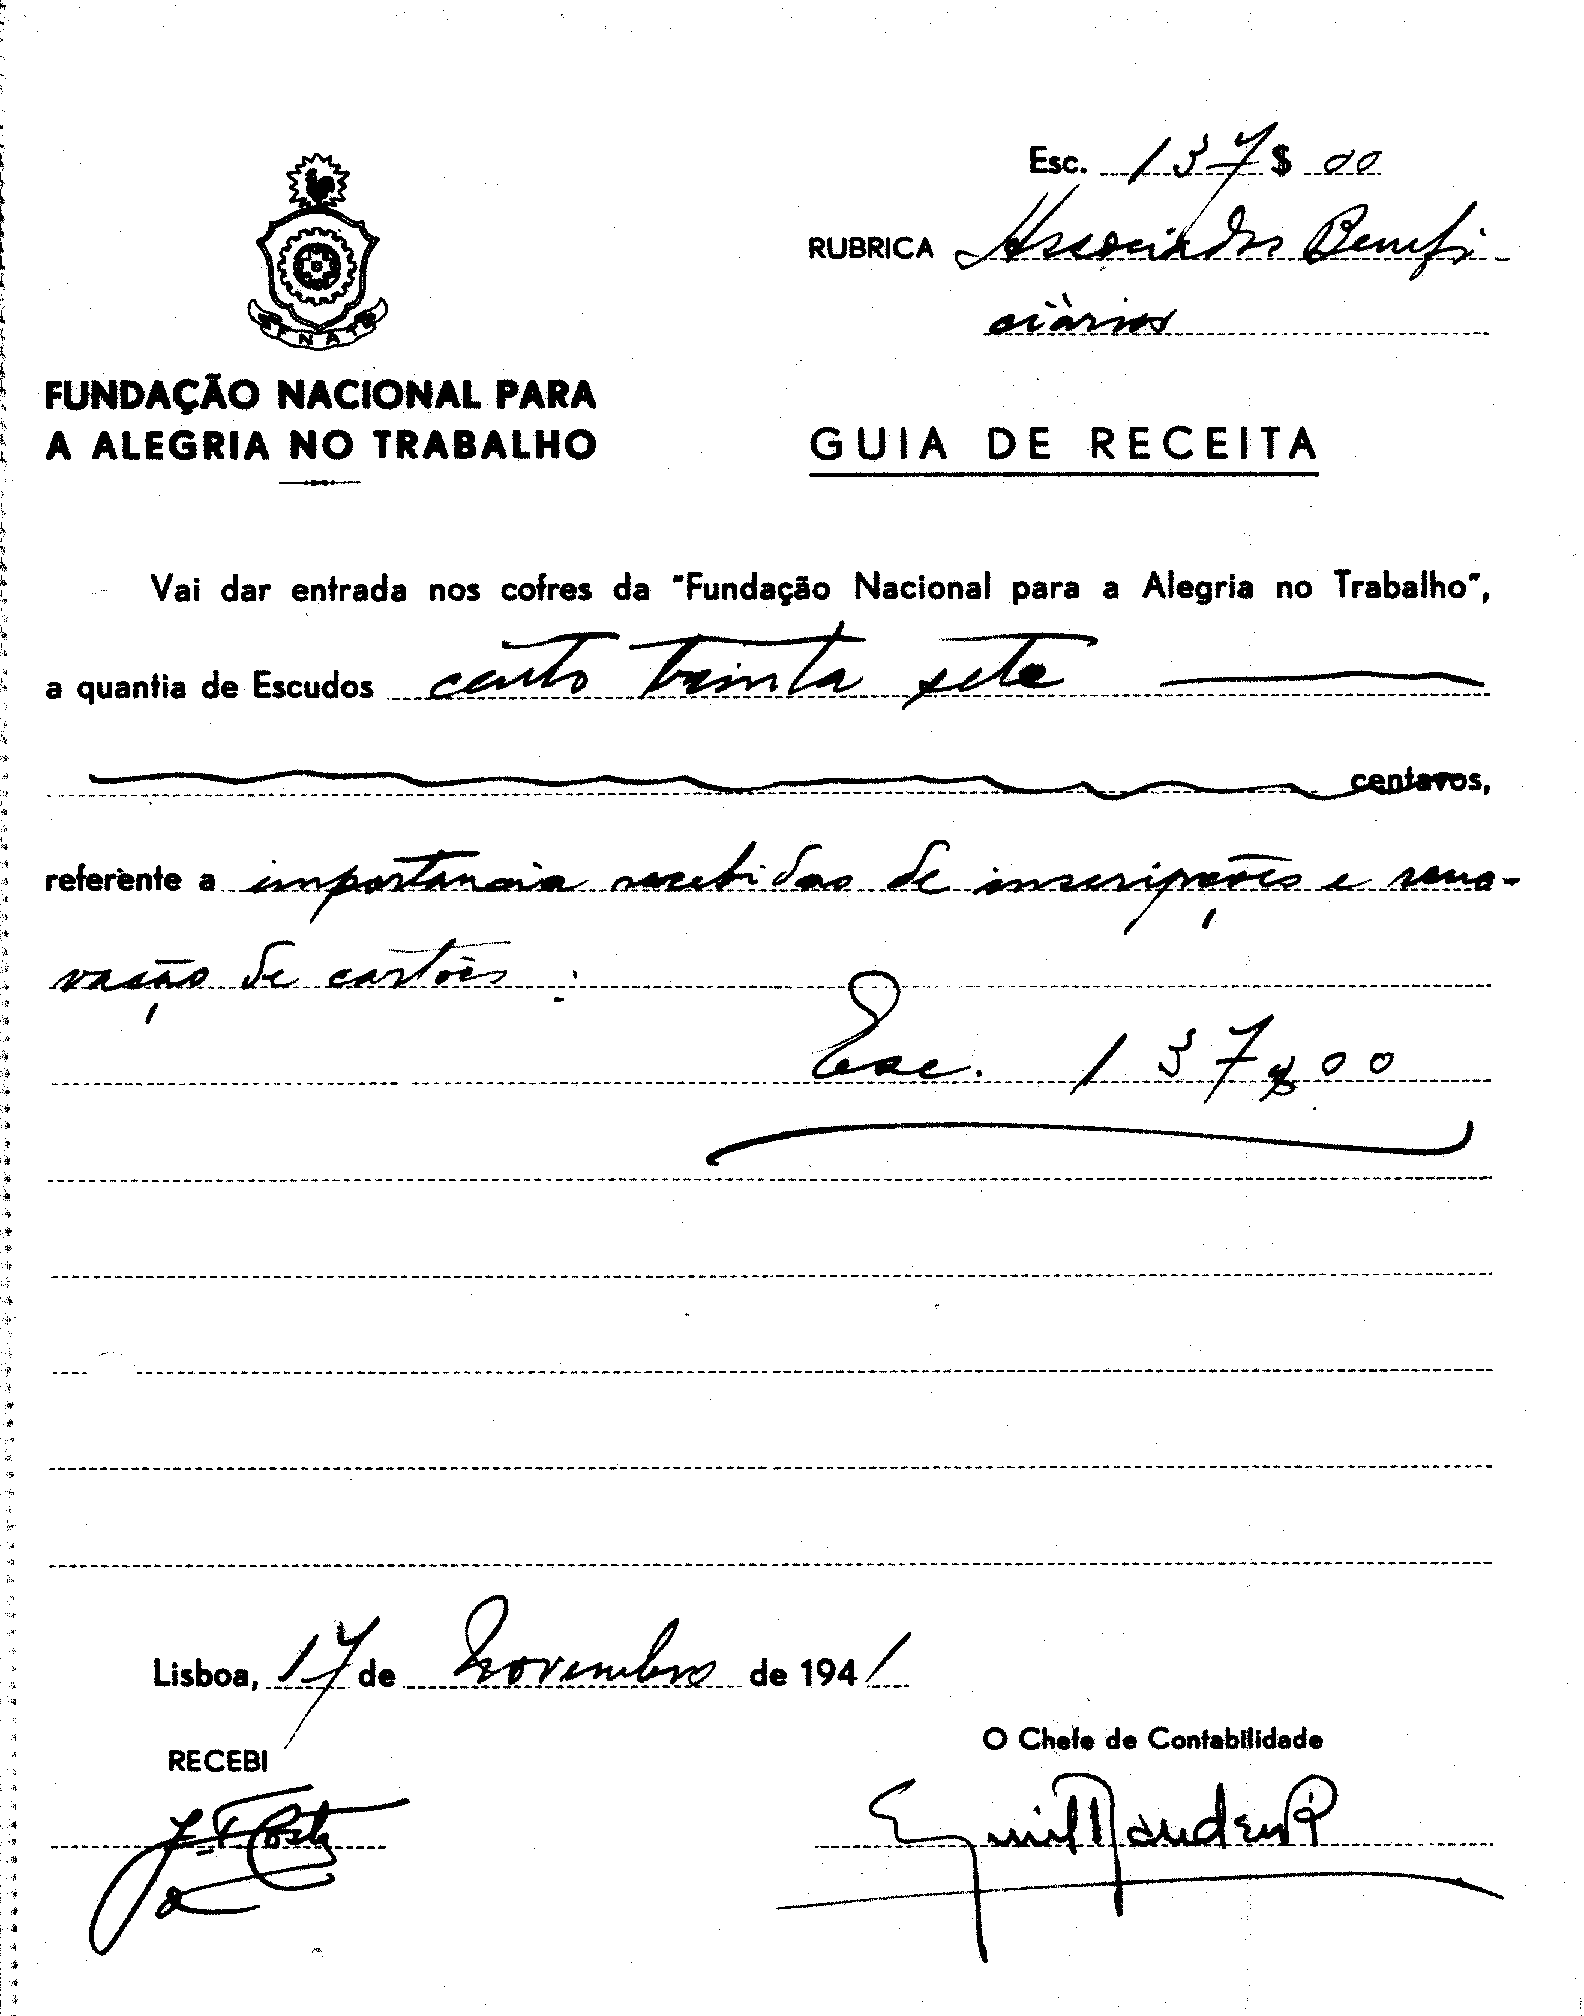 Esc. 137$00
RUBRICA Associados Benefi-
ciários
FNAT
FUNDAÇÃO NACIONAL PARA
A ALEGRIA NO TRABALHO
GUIA DE RECEITA
Vai dar entrada nos cofres da "Fundação Nacional para a Alegria no Trabalho",
a quantia de Escudos cento trinta sete
centavos,
referente a importancia recebidas de inscrições e reno-
vação de cartões :
Esc. 137$00
Lisboa, 17 de Novembro de 1941
RECEBI
O Chefe de Contabilidade
Costa